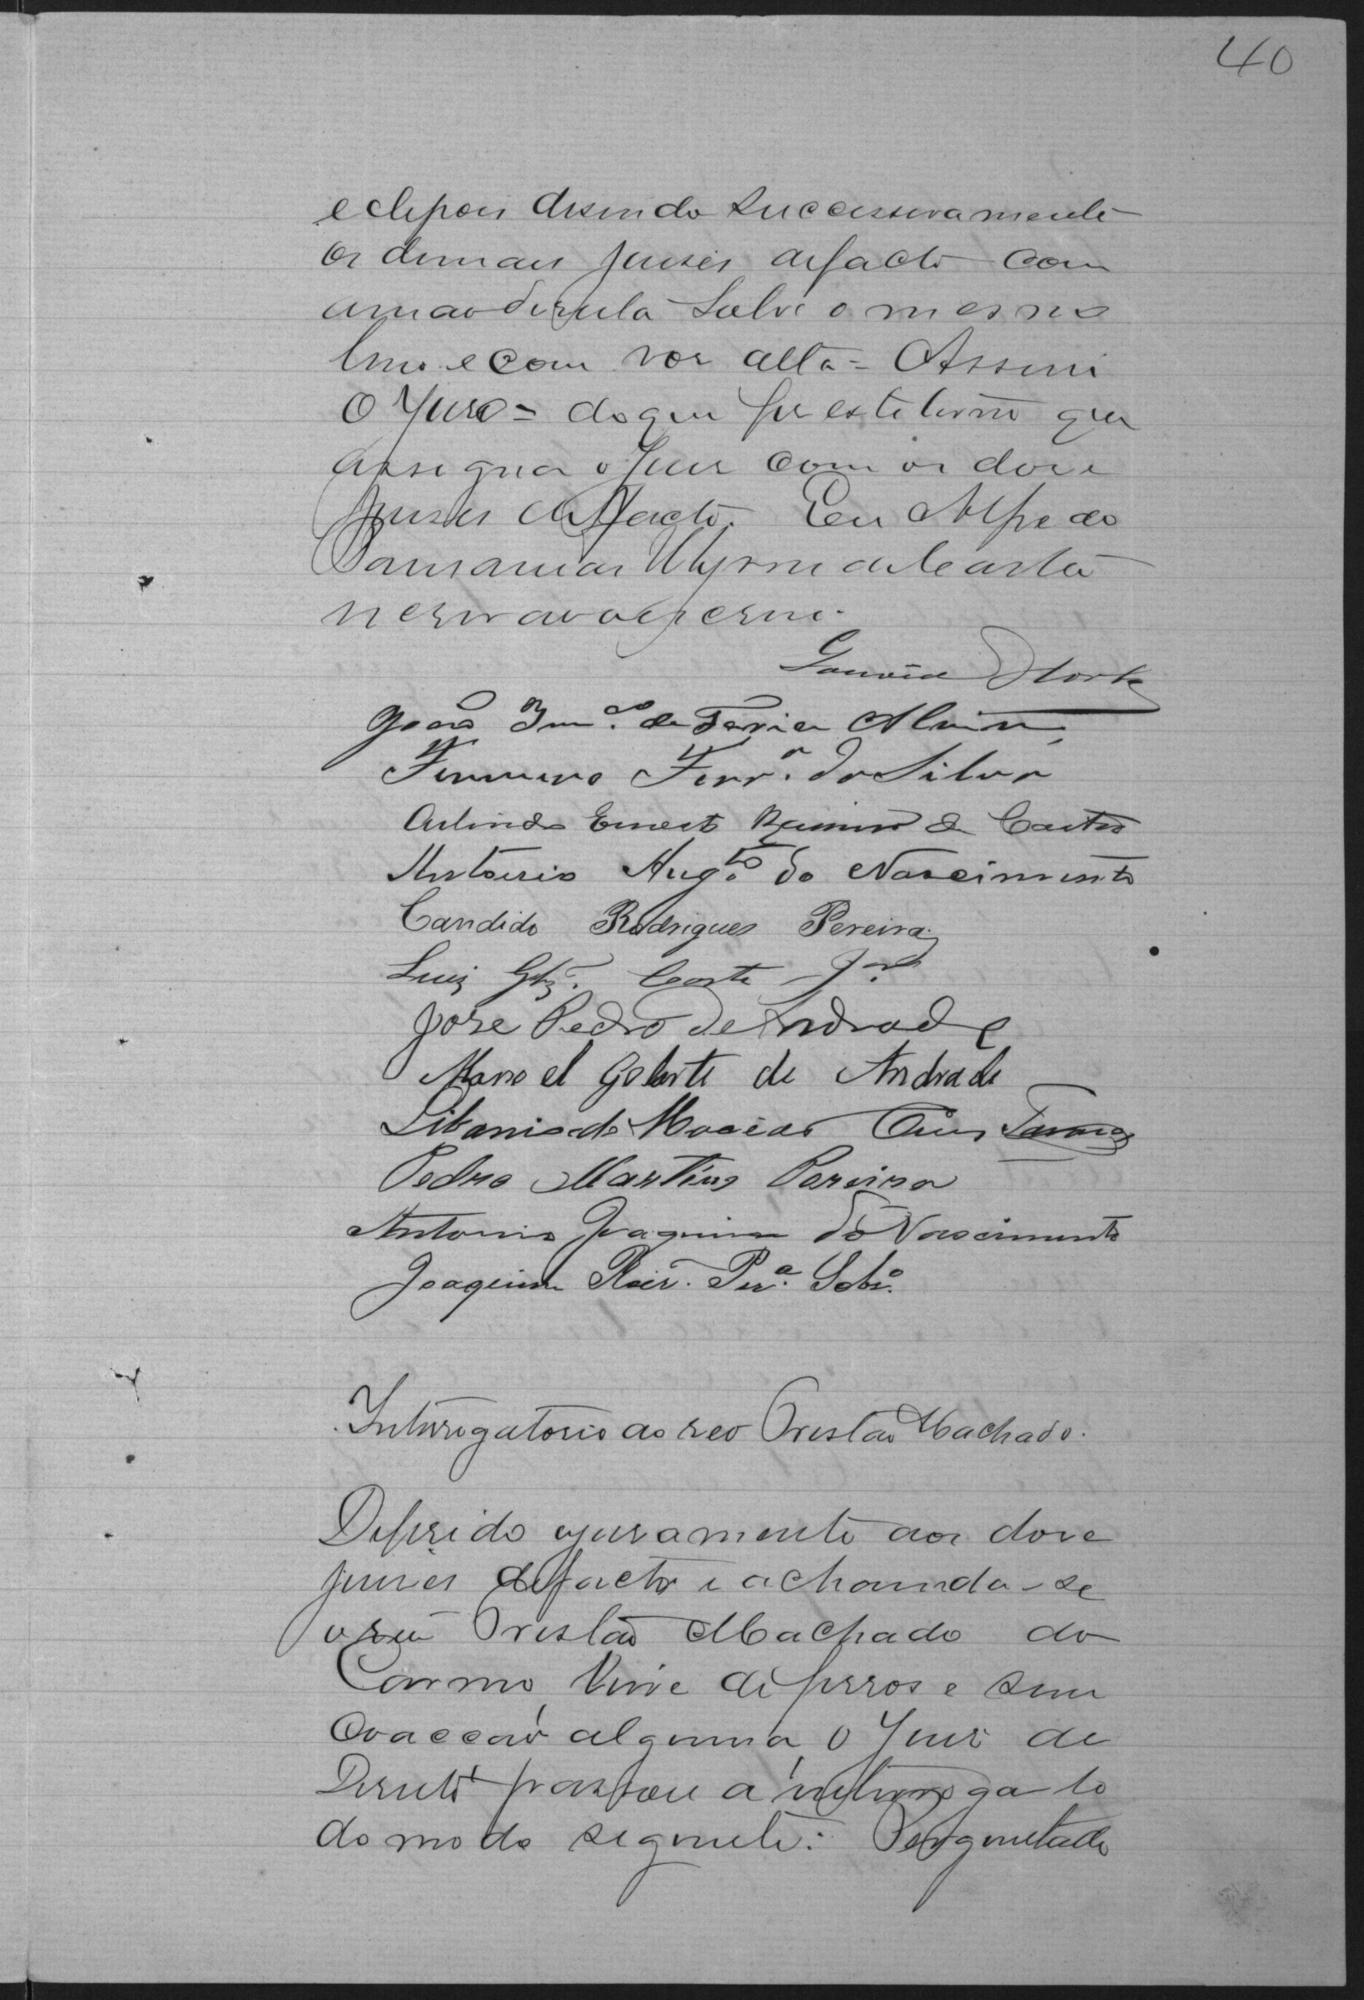 40
e depois disendo successivamente
os demais juises de facto com
a mão direita sobre o mesmo
livro e com voz alta = Assim
o Juro = do que fiz este termo que
assigna o Juiz com os doze
juises de facto. Eu Alfredo
da Costa
escrivão o escrevi.
Gouvêa Horta
João Im.co de Faria Alvim
Firmino Ferr.a da Silva
Arlindo Ernesto Ramiro de Castro
Antonio Aug.to do Nascimento
Candido Rodrigues Pereira
Luiz Glz. Costa J.or
Jose Pedro de Andrade
Manoel Goларte de Andrade
Libanio de Tavares
Pedro Martins Pereira
Antonio Joaquim do Nascimento
Joaquim Roiz. Per.a Sobr.o
Interrogatorio ao reo Tristão Machado.
Deferido o juramento aos doze
juizes de facto e achando-se
o reu Tristão Machado do
Carmo, livre de ferros e sem
coacção alguma, o Juiz de
Direito passou a interroga-lo
do modo seguinte: Perguntado